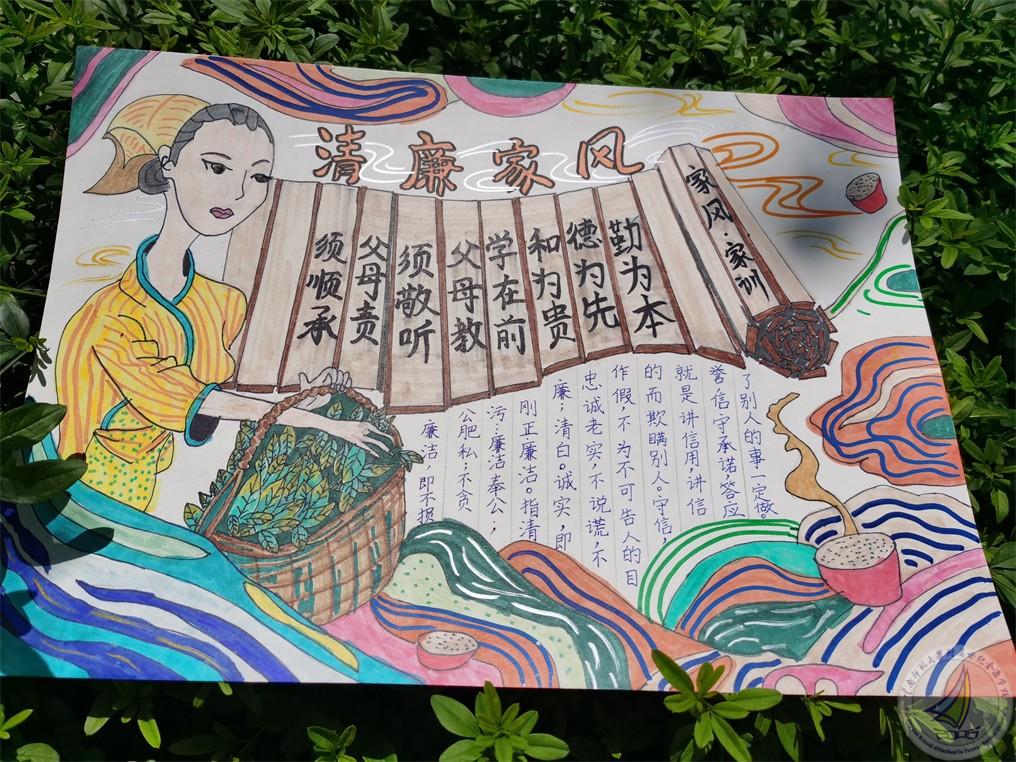 清廉家风
家风·家训
勤为本
德为先
和为贵
学在前
父母教
须敬听
父母责
须顺承
廉洁,即不损
公肥私;不贪
污…廉洁奉公;
刚正廉洁。指清
廉;清白。诚实,即
忠诚老实,不说谎,不
作假,不为不可告人的目
的而欺瞒别人。守信,
就是讲信用,讲信
誉信守承诺,答应
了别人的事一定做。